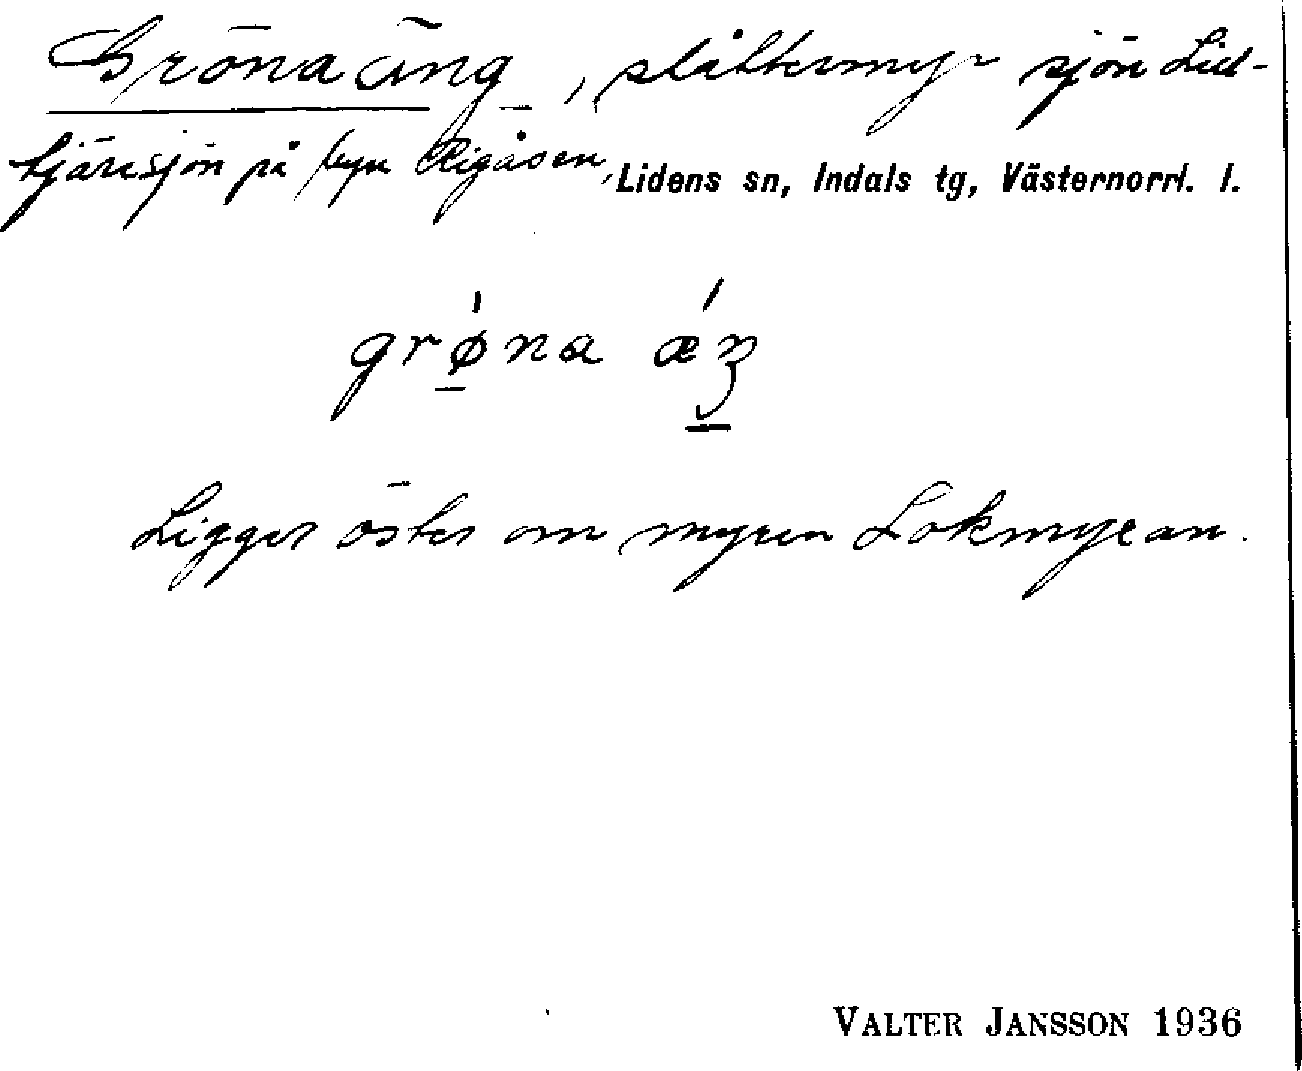 Gröna äng, slåttermyr sjön Lid-
tjärnsjön på byn Rigåsen, Lidens sn, Indals tg, Västernorrl. l.
grǿna ǽŋ
Ligger öster om myren Lokmyran.
VALTER JANSSON 1936